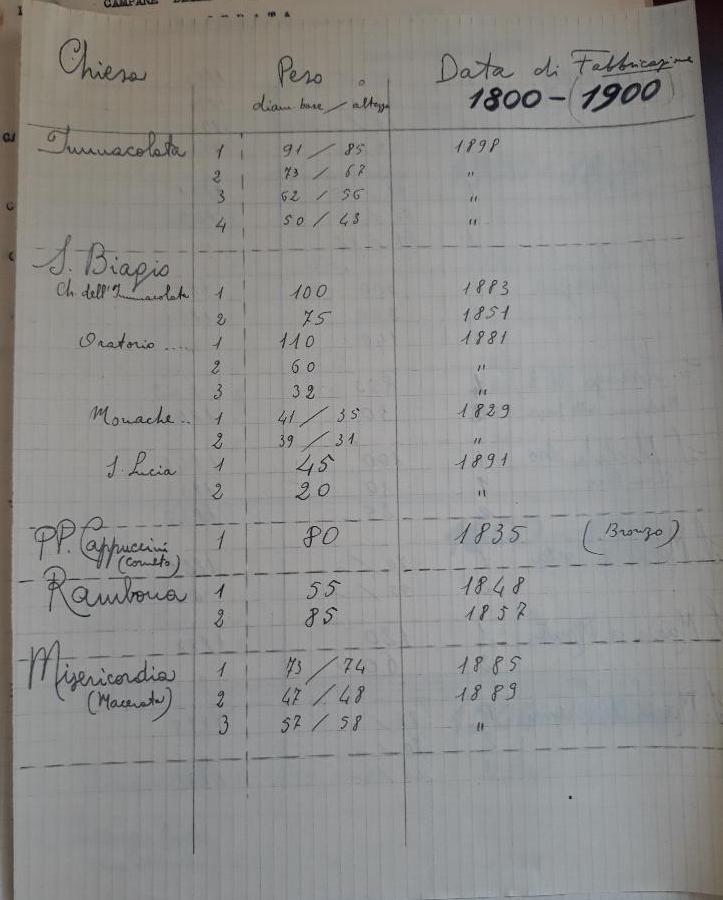 CAMPANE
Chiesa Peso o Data di Fabbricazione
diam. base / altezza 1800-(1900)
Immacolata 1 91 / 85 1898
2 73 / 67 "
3 62 / 56 "
4 50 / 43 "
S. Biagio
Ch. dell'Immacolata 1 100 1883
2 75 1851
Oratorio .... 1 110 1881
2 60 "
3 32 "
Monache .. 1 41 / 35 1829
2 39 / 31 "
S. Lucia 1 45 1891
2 20 "
PP. Cappuccini 1 80 1835 (Bronzo)
(Corneto)
Rambona 1 55 1848
2 85 1857
Misericordia 1 73 / 74 1885
(Macerata) 2 47 / 48 1889
3 57 / 58 "